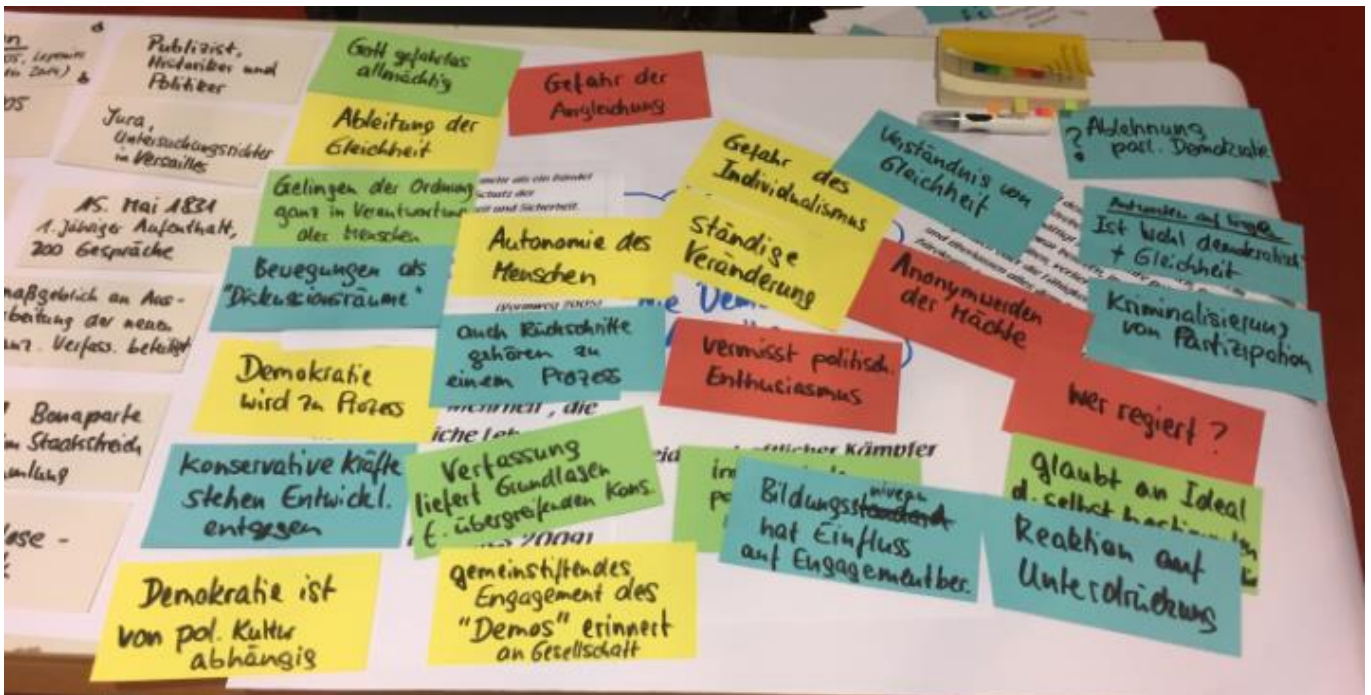 Publizist,
Historiker und
Politiker
Jura,
Untersuchungsrichter
in Versailles
15. Mai 1831
1. jähriger Aufenthalt,
200 Gespräche
maßgeblich an Aus-
beitung der neuen
Verfass. beteiligt
Bonaparte
Staatsstreich
Gott gefahrlos
allmächtig
Ableitung der
Gleichheit
Gelingen der Ordnung
ganz in Verantwortung
des Menschen
Bewegungen als
"Diskussionsräume"
Demokratie
wird zu Prozess
Konservative Kräfte
stehen Entwickl.
entgegen
Demokratie ist
von pol. Kultur
abhängig
Gefahr der
Angleichung
mehr als ein
Schutz der
und Sicherheit.
Autonomie des
Menschen
auch Rückschritte
gehören zu
einem Prozess
, die
Verfassung
liefert Grundlagen
f. übergreifenden Kons.
2009)
gemeinstiftendes
Engagement des
"Demos" erinnert
an Gesellschaft
Gefahr des
Individualismus
Ständige
Veränderung
vermisst politisch.
Enthusiasmus
Kämpfer
Bildungsniveau
hat Einfluss
auf Engagementber.
Verständnis von
Gleichheit
Anonymwerden
der Mächte
Wer regiert?
glaubt an Ideal
Reaktion auf
Unterdrückung
? Ablehnung
parl. Demokratie
Ist Wahl demokratisch
+ Gleichheit
Kriminalisierung
von Partizipation